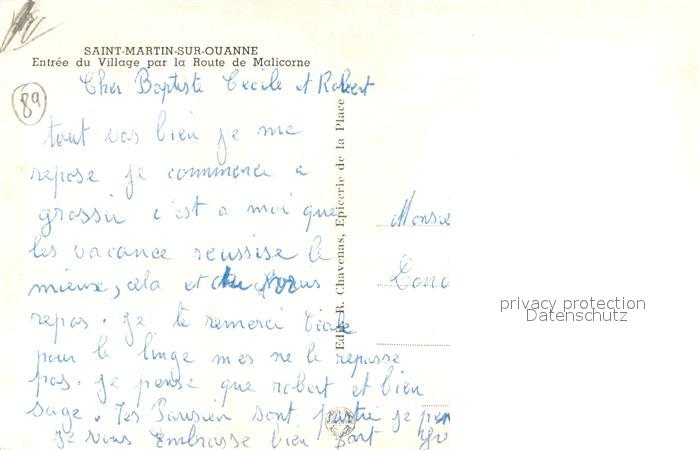 SAINT-MARTIN-SUR-OUANNE
Entrée du Village par la Route de Malicorne
89
Cher Baptiste Cecile et Robert
tout vas bien je me
repose je commence a
grossir c'est a moi que
les vacance reussise le
mieux, cela et du
repos. je te remerci Cécile
pour le linge mes ne le repasse
pas. je pense que robert et bien
sage. les Parisien sont partie je
je vous embrasse bien fort
Edit. R. Chavenas, Epicerie de la Place
Monsie
privacy protection
Datenschutz